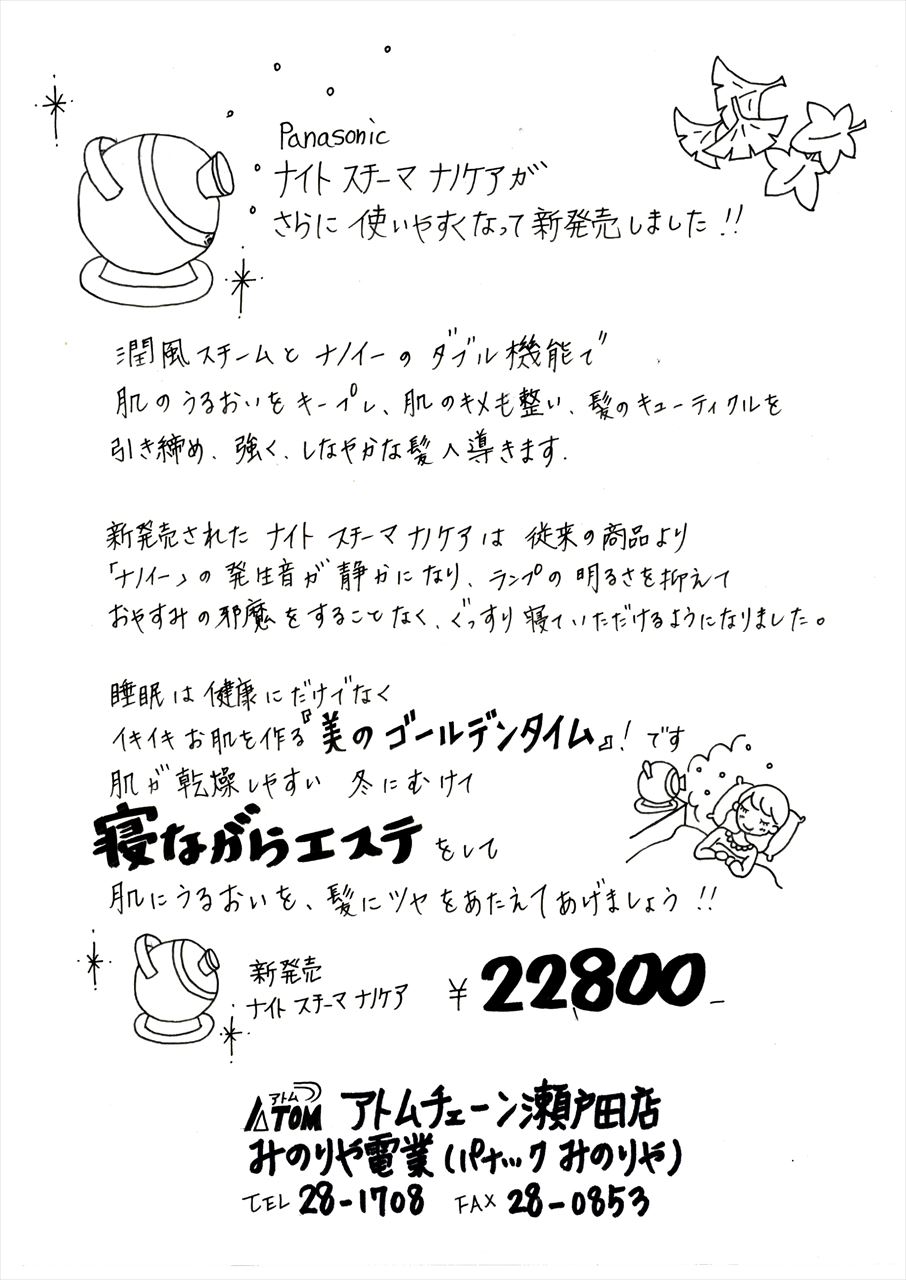 Panasonic
ナイト スチーマ ナノケアが
さらに 使いやすくなって 新発売しました!!
潤風スチームと ナノイーの ダブル機能で
肌のうるおいをキープし、肌のキメも整い、髪のキューティクルを
引き締め、強く、しなやかな髪へ導きます.
新発売された ナイト スチーマ ナノケアは 従来の商品より
「ナノイー」の 発生音が静かになり、ランプの明るさを抑えて
おやすみの邪魔をすることなく、ぐっすり寝ていただけるようになりました。
睡眠は健康にだけでなく
イキイキお肌を作る『美のゴールデンタイム』!です
肌が乾燥しやすい 冬にむけて
寝ながらエステをして
肌にうるおいを、髪にツヤをあたえてあげましょう!!
新発売
ナイト スチーマ ナノケア ¥22800-
アトム ATOM アトムチェーン瀬戸田店
みのりや電業(パナック みのりや)
TEL 28-1708 FAX 28-0853